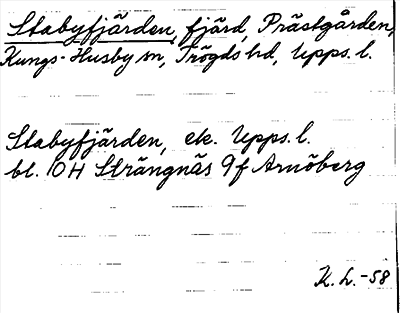 Stabyfjärden, fjärd, Prästgården,
Kungs-Husby sn, Trögds hd, Upps. l.
Stabyfjärden, ek. Upps. l.
bl. 10 H Strängnäs 9 f Arnöberg
K. L. -58